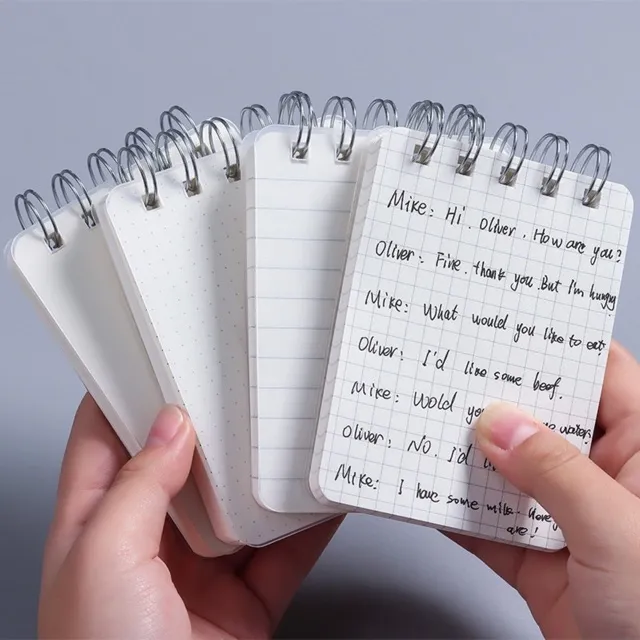 Mike: Hi. Oliver. How are you?
Oliver: Fine. thank you. But I'm hungry
Mike: What would you like to eat?
Oliver: I'd like some beef.
Mike: Wold you water
Oliver: NO. I'd li
Mike: I have some milk. Here
are!